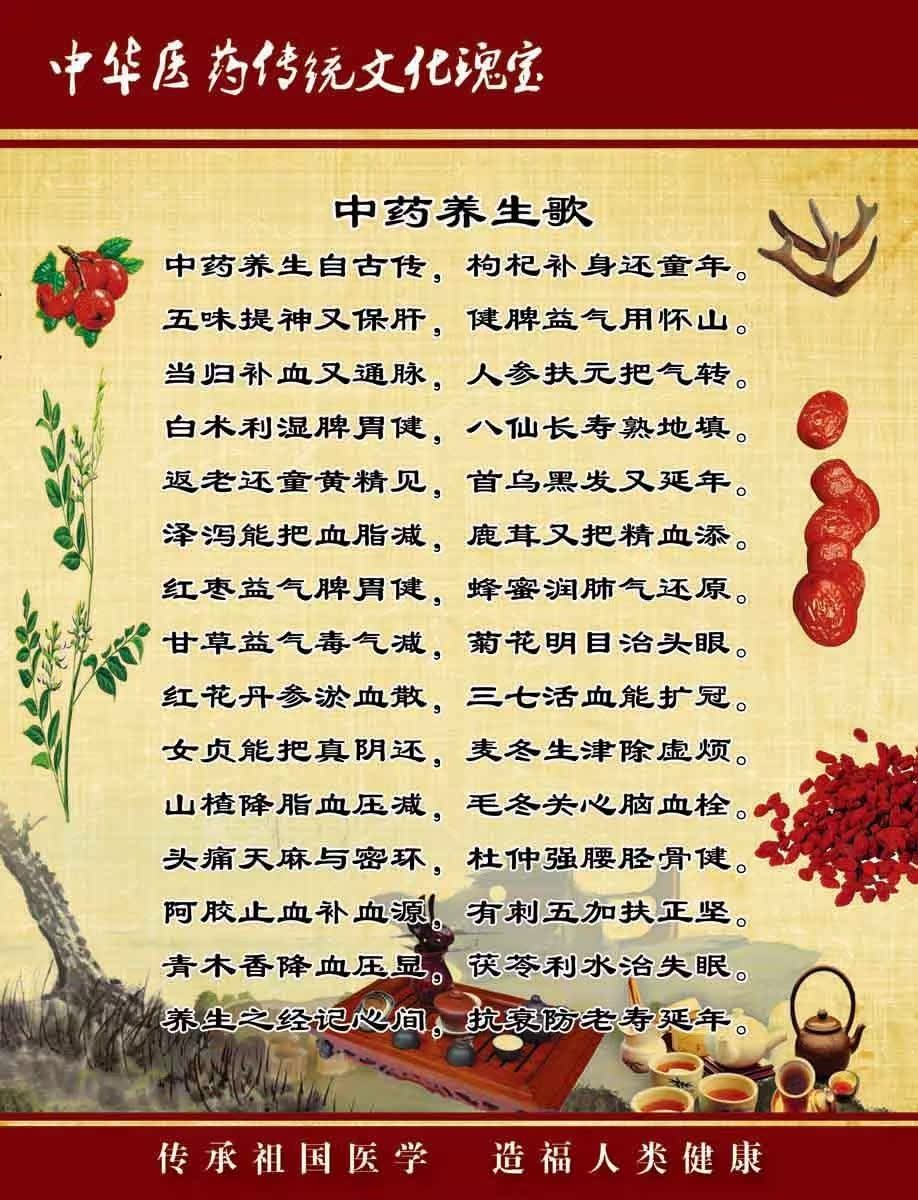 中华医药传统文化瑰宝
中药养生歌
中药养生自古传，枸杞补身还童年。
五味提神又保肝，健脾益气用怀山。
当归补血又通脉，人参扶元把气转。
白术利湿脾胃健，八仙长寿熟地填。
返老还童黄精见，首乌黑发又延年。
泽泻能把血脂减，鹿茸又把精血添。
红枣益气脾胃健，蜂蜜润肺气还原。
甘草益气毒气减，菊花明目治头眼。
红花丹参淤血散，三七活血能扩冠。
女贞能把真阴还，麦冬生津除虚烦。
山楂降脂血压减，毛冬关心脑血栓。
头痛天麻与密环，杜仲强腰胫骨健。
阿胶止血补血源，有刺五加扶正坚。
青木香降血压显，茯苓利水治失眠。
养生之经记心间，抗衰防老寿延年。
传承祖国医学 造福人类健康